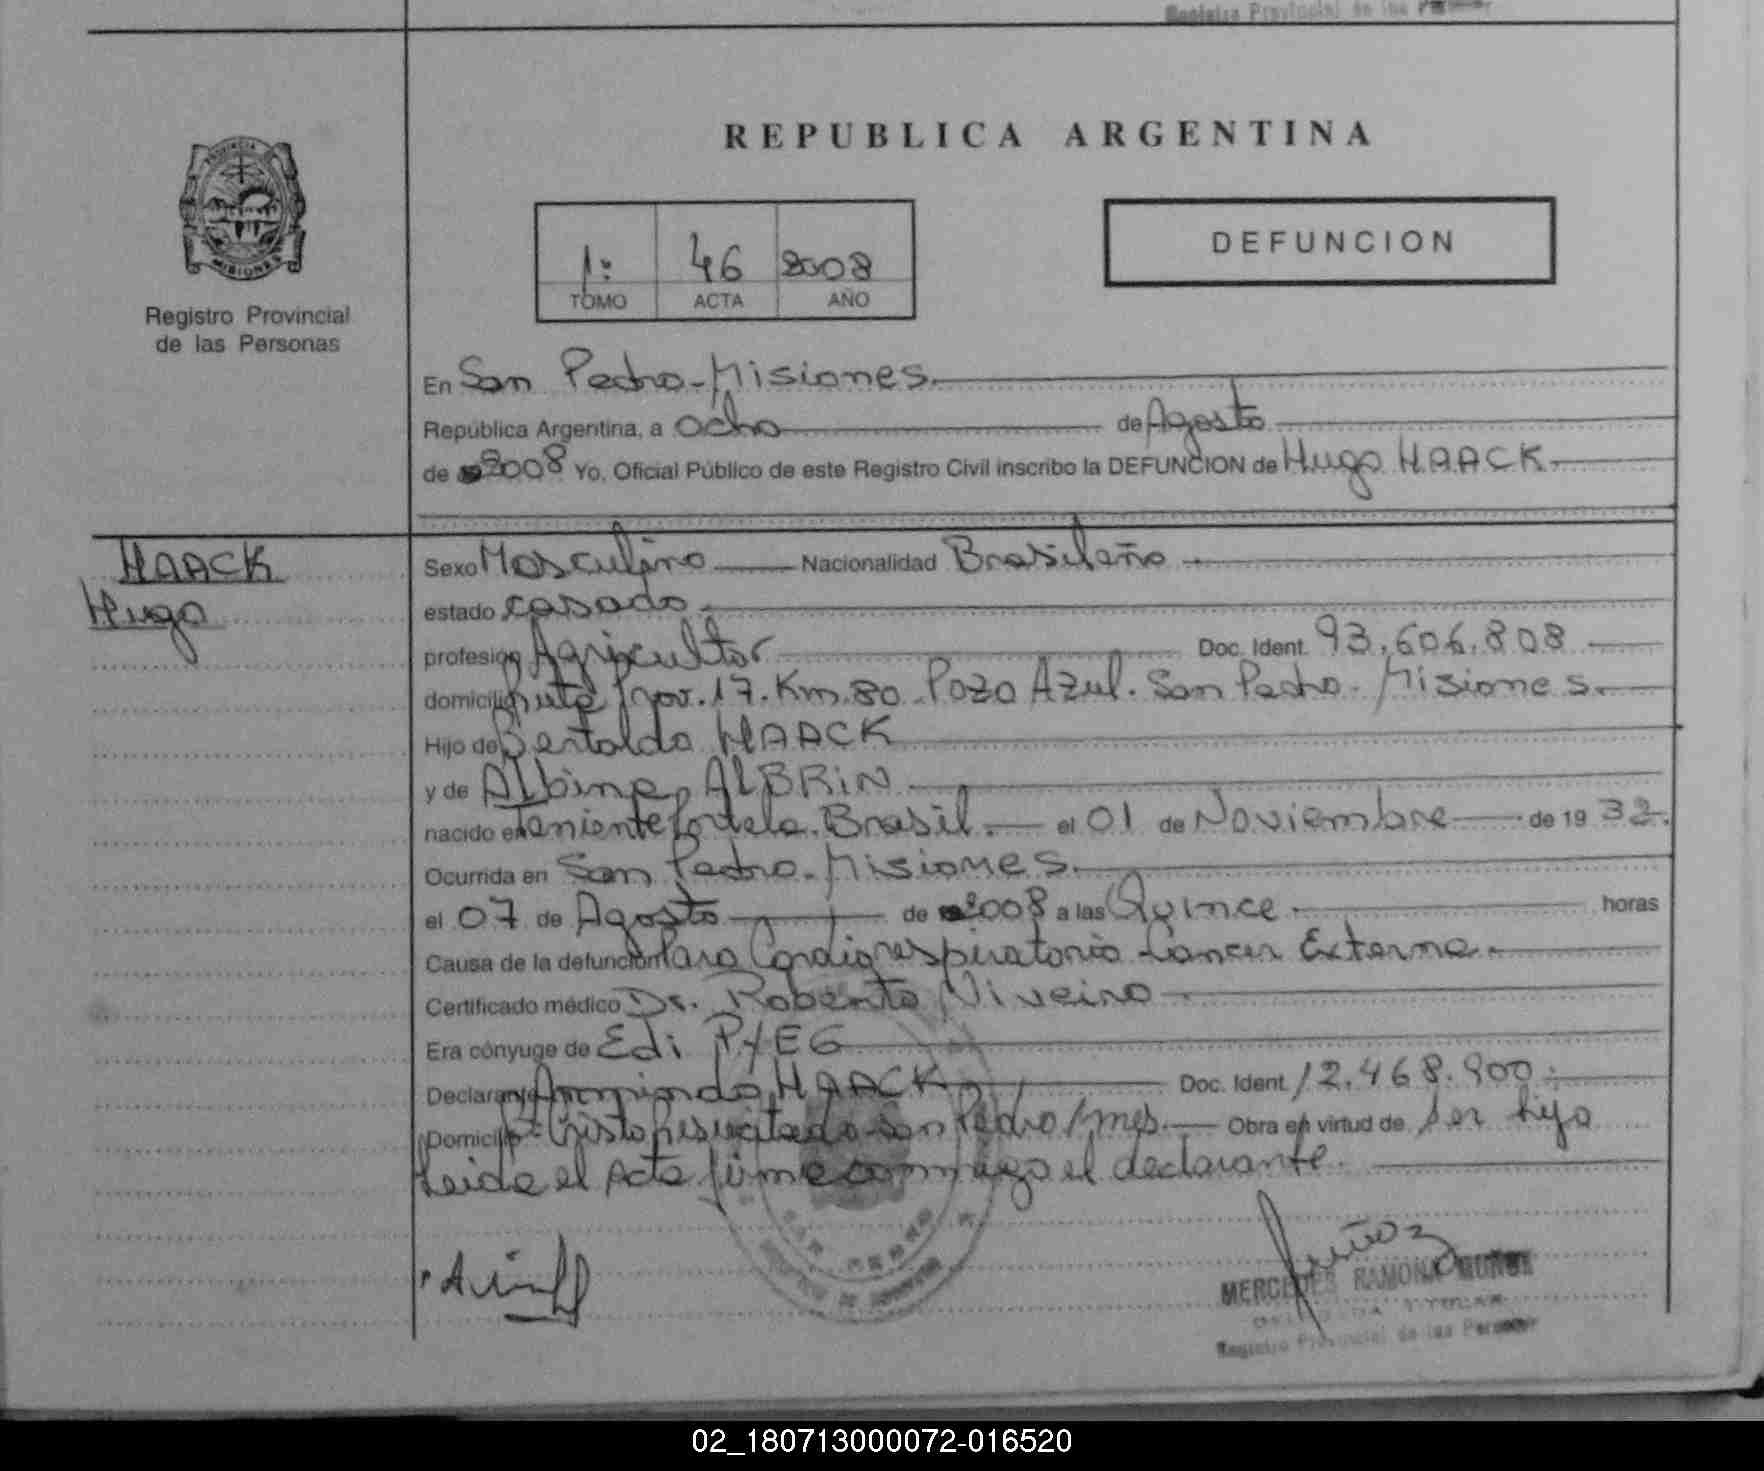 Registro Provincial de las
REPUBLICA ARGENTINA
PROVINCIA
MISIONES
Registro Provincial
de las Personas
1º 46 2008
TOMO ACTA AÑO
DEFUNCION
En San Pedro-Misiones
República Argentina, a ocho de Agosto
de 2008 Yo, Oficial Público de este Registro Civil inscribo la DEFUNCION de Hugo HAACK
HAACK
Hugo
Sexo Masculino Nacionalidad Brasileño
estado casado
profesión Agricultor Doc. Ident. 93.606.808
domicilio Ruta Prov. 17. Km. 80. Pozo Azul. San Pedro - Misiones.
Hijo de Bertoldo HAACK
y de Albina ALBRIN
nacido en Teniente Portela. Brasil. el 01 de Noviembre de 19 32.
Ocurrida en San Pedro-Misiones.
el 07 de Agosto de 2008 a las Quince horas
Causa de la defunción Paro Cardiorespiratorio - Cancer Externa.
Certificado médico Dr. Roberto Viveiro
Era cónyuge de Edi
Declarante Armindo HAACK Doc. Ident. 12.468.900.
Domicilio Bº Cristo Resucitado San Pedro/Mnes. Obra en virtud de Ser hijo
Leida el Acta firma conmigo el declarante.
Muñoz
MERCEDES RAMONA MUÑOZ
Registro Provincial de las Personas
02_180713000072-016520